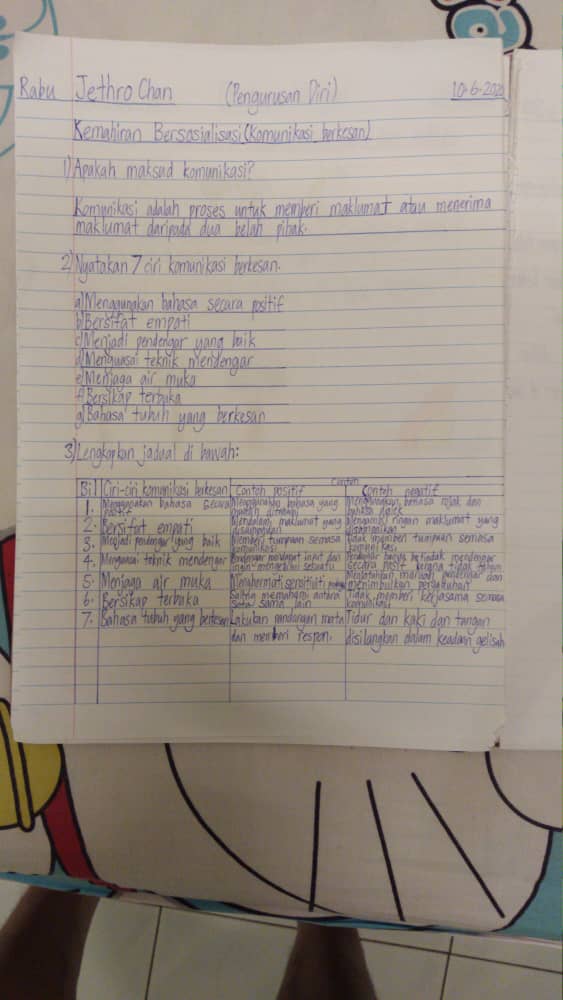 Rabu Jethro Chan (Pengurusan Diri) 10-6-2020
Kemahiran Bersosialisasi (Komunikasi berkesan)
1) Apakah maksud komunikasi?
Komunikasi adalah proses untuk memberi maklumat atau menerima
maklumat daripada dua belah pihak.
2) Nyatakan 7 ciri komunikasi berkesan.
a) Menggunakan bahasa secara positif
b) Bersifat empati
c) Menjadi pendengar yang baik
d) Menguasai teknik mendengar
e) Menjaga air muka
f) Bersikap terbuka
g) Bahasa tubuh yang berkesan
3) Lengkapkan jadual di bawah:
Contoh
Bil Ciri-ciri komunikasi berkesan Contoh positif Contoh negatif
1. Menggunakan bahasa secara positif Menggunakan bahasa yang mudah Menggunakan bahasa rojak dan bahasa
2. Bersifat empati Mendalami maklumat yang disampaikan maklumat yang disampaikan
3. Menjadi pendengar yang baik Memberi tumpuan semasa komunikasi Tidak memberi tumpuan semasa komunikasi
4. Menguasai teknik mendengar Pendengar mendapat input dan ingin mengetahui sesuatu Pendengar hanya bertindak mendengar secara pasif kerana tidak
5. Menjaga air muka Menghormati sensitiviti Menjatuhkan maruah pendengar dan menimbulkan pergaduhan
6. Bersikap terbuka Saling memahami antara satu sama lain Tidak memberi kerjasama semasa komunikasi
7. Bahasa tubuh yang berkesan Lakukan pandangan mata dan memberi respon. Tidur dan kaki dan tangan disilangkan dalam keadaan gelisah